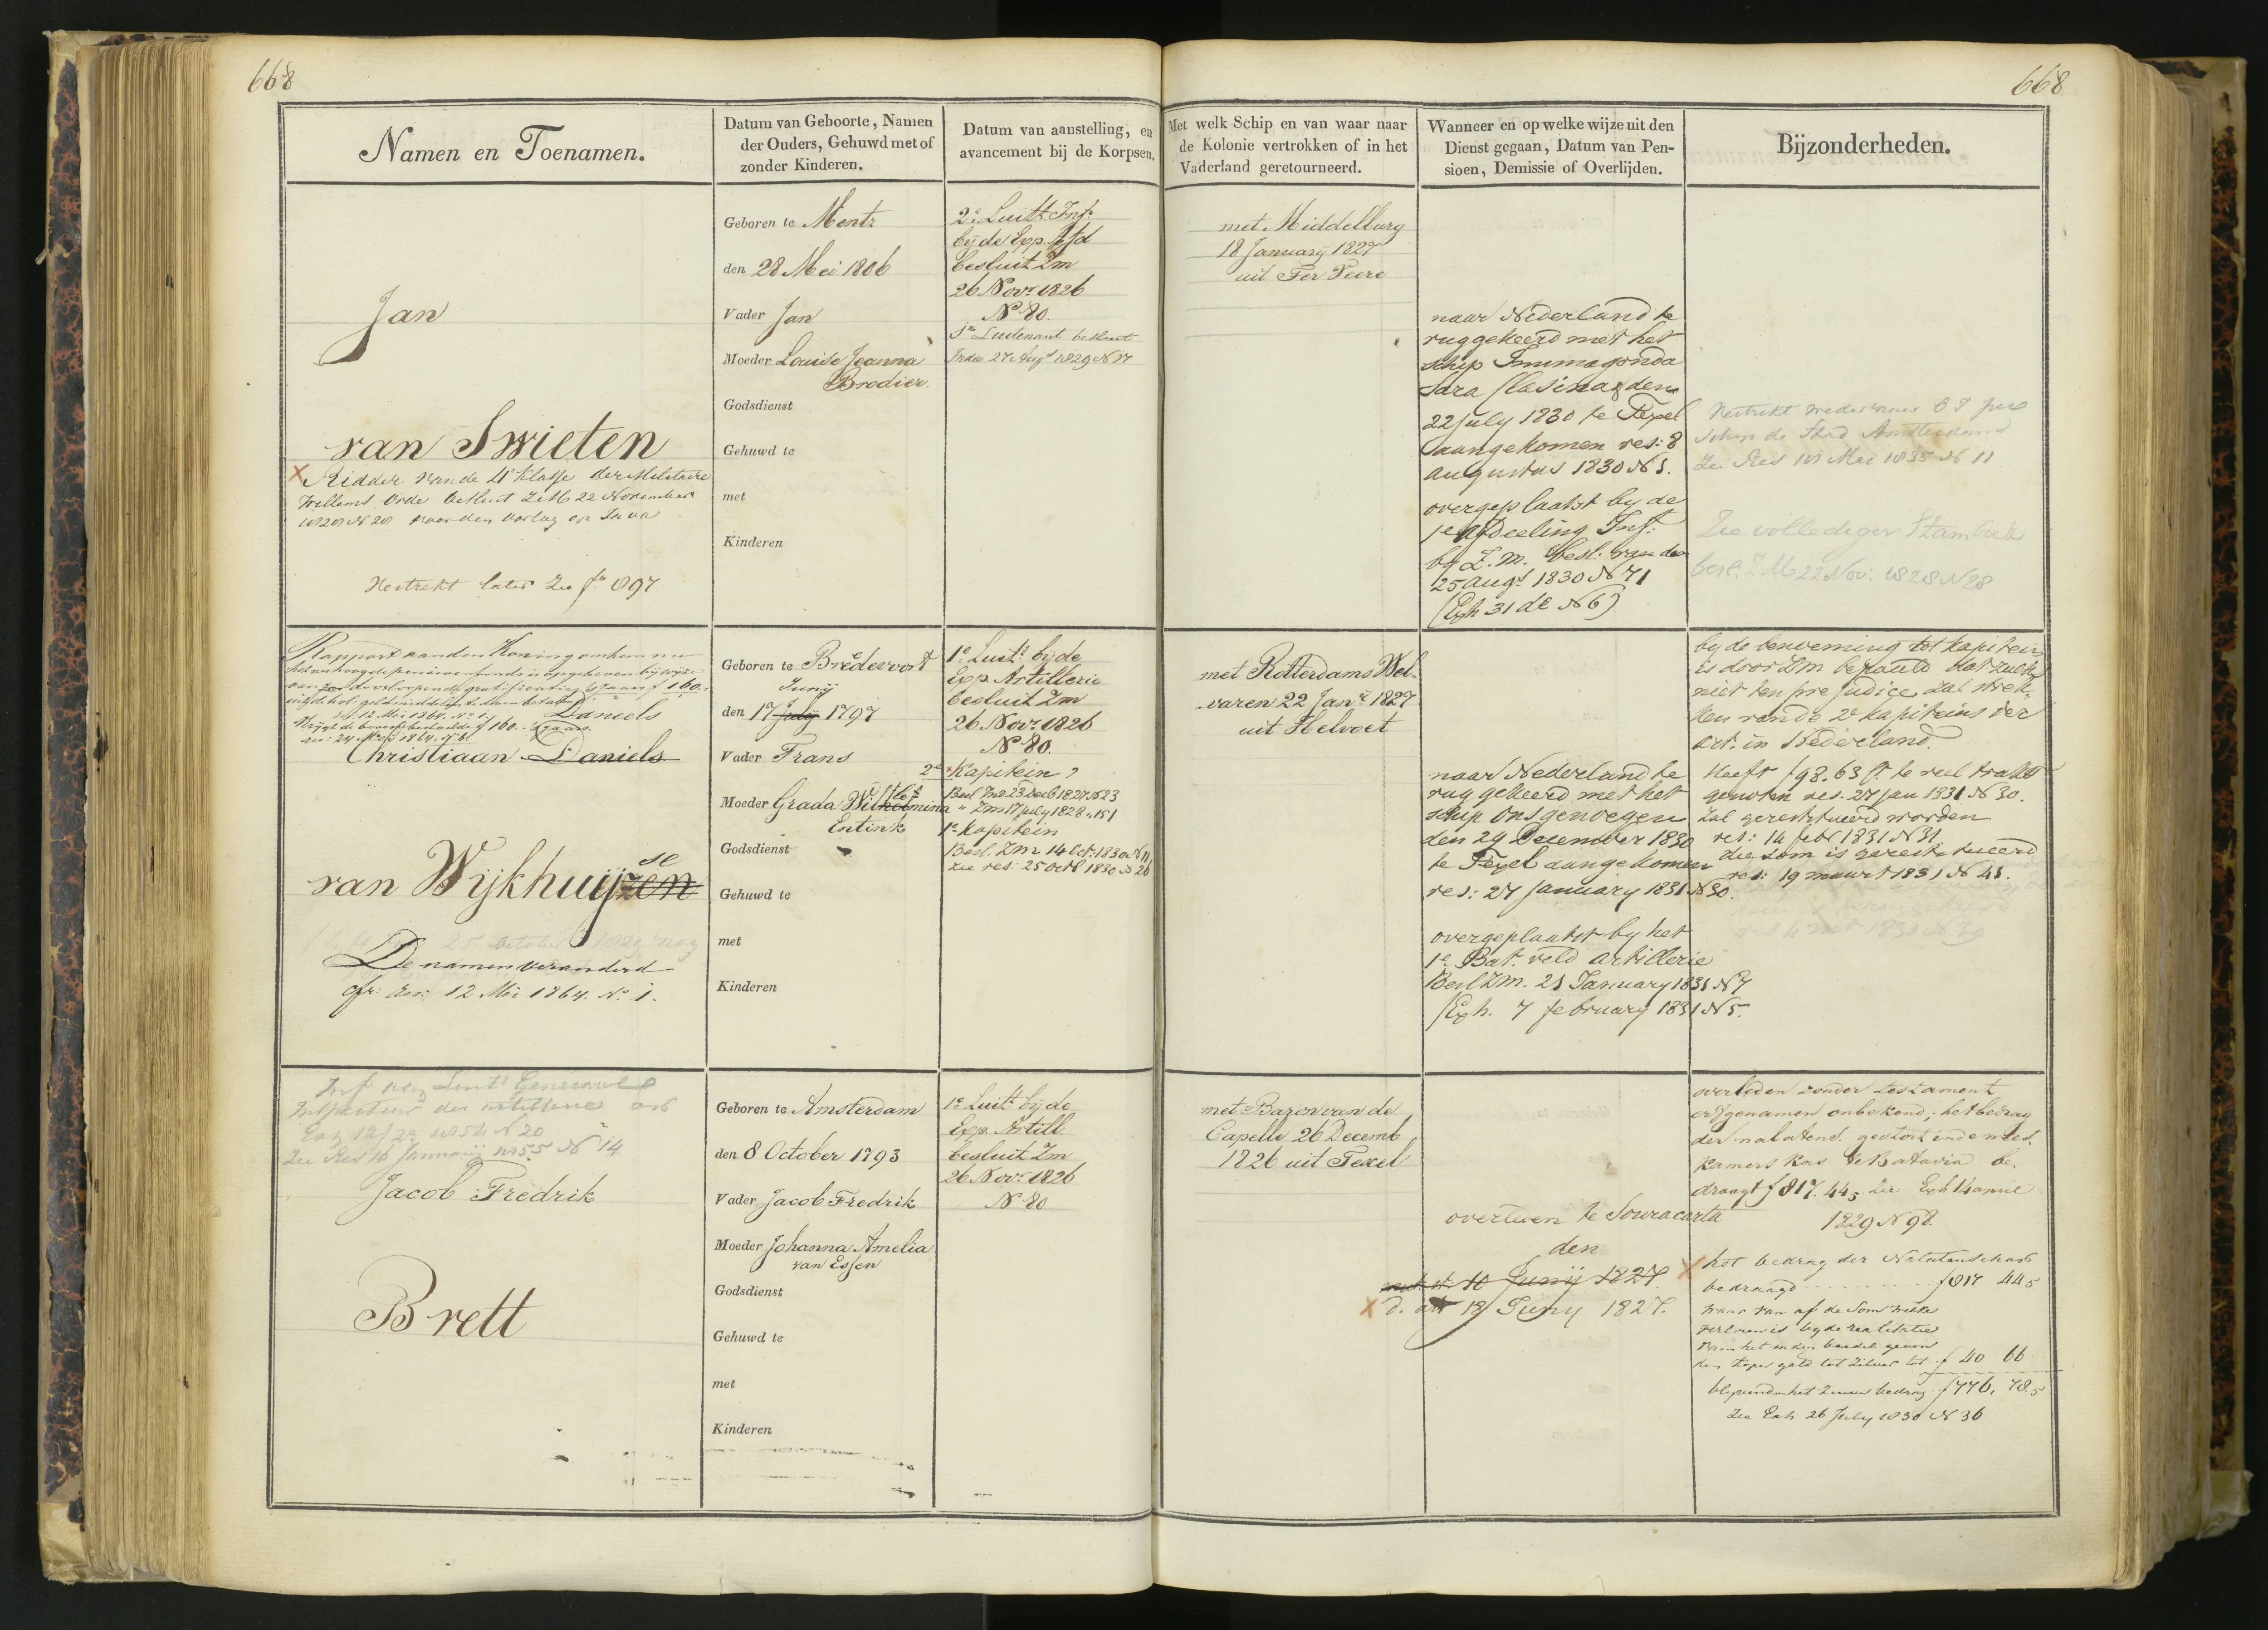 668
668
Namen en Toenamen.
Datum van Geboorte, Namen
der Ouders, Gehuwd met of
zonder Kinderen.
Datum van aanstelling, en
avancement bij de Korpsen.
Met welk Schip en van waar naar
de Kolonie vertrokken of in het
Vaderland geretourneerd.
Wanneer en op welke wijze uit den
Dienst gegaan, Datum van Pen-
sioen, Demissie of Overlijden.
Bijzonderheden.
Jan
van Swieten
Ridder van de 4e Klasse der Militaire
Willems Orde besluit ZM 22 November
1828 N 28 voor den oorlog op Java
Vertrekt later Zie fo 897
Geboren te Mentz
den 28 Mei 1806
Vader Jan
Moeder Louise Jeanna
Brodier.
Godsdienst
Gehuwd te
met
Kinderen
2e Luitt. Inf.
bij de Exp. Afd
besluit Zm
26 Novr 1826
No 80.
1e Luitenant besluit
Indie 27 Augt 1829 N 17
met Middelburg
18 January 1827
uit Ter Veere
naar Nederland te
ruggekeerd met het
schip Immagonda
Sara Clasina, den
22 July 1830 te Texel
aangekomen res: 8
augustus 1830 N 5.
overgeplaatst by de
1e afdeeling Inf:
by Z.M. besl. van den
25 augt 1830 N 71
(Exh 31 de N 6)
Vertrekt wederom
schip de Stad Amsterdam
Zie Res 18 Mei 1835 N 11
Zie vollediger Stamboek
besl. ZM 22 Nov: 1828 N 28
Rapport aan den Koning om hem
res: 12 Mei 1864. No 1.
Daniels
Christiaan Daniels
van Wijkhuijzen
se
De namen veranderd
cfr: res: 12 Mei 1864. No 1.
Geboren te Bredevoort
Junij
den 17 July 1797
Vader Frans
Moeder Grada Wilhelmina
Entink
Godsdienst
Gehuwd te
met
Kinderen
1e Luitt bij de
Exp. Artillerie
besluit Zm
26 Novr 1826
No 80.
2e Kapitein
Besl Ind 23 Decb 1827 N 23
" Zm 17 July 1828 " 151
1e Kapitein
Besl. Zm 14 Oct: 1830 N 11
zie res: 25 octb 1830 N 26
met Rotterdams Wel-
varen 22 Janr 1827
uit Helvoet
naar Nederland te
rug gekeerd met het
schip Ons genoegen
den 29 December 1830
te Texel aangekomen
res: 27 January 1831 N 30.
overgeplaatst by het
1e Bat. veld artillerie
Besl Zm. 21 January 1831 N 7
(Exh. 7 february 1831 N 5.
by de benoeming tot kapitein
is door Zm bepaald dat zulks
niet ten prejudice zal strek-
ken van de 2e kapiteins der
art. in Nederland.
Heeft f 98.63 te veel trakt
genoten res. 27 jan 1831 N 30.
zal gerestitueerd worden
res: 14 febr 1831 N 31
die som is gerestitueerd
res: 19 maart 1831 N 48.
Luitt Generaal
Inspecteur der artillerie
Zie Res 16 January 1855 N 14
Jacob Fredrik
Brett
Geboren te Amsterdam
den 8 October 1793
Vader Jacob Fredrik
Moeder Johanna Amelia
van Essen
Godsdienst
Gehuwd te
met
Kinderen
1e Luitt bij de
Exp. Artill.
besluit Zm
26 Novr 1826
No 80
met Baron van de
Capelle 26 Decemb
1826 uit Texel
overleden te Souracarta
den
10 Junij 1827.
18 Juny 1827.
overleden zonder testament
erfgenamen onbekend, het bedrag
der nalatens. gestort in de wees
kamers kas te Batavia be-
draagt f 817.445 zie Exh 14 april
1829 N 98.
het bedrag der Nalatenschap
bedraagd f 817 445
waar van af de Som welke
verloren is by de realisatie
van het in den boedel gevon
den koper geld tot zilver tot f 40 66
blyvende het zuiver bedrag f 776.785
Zie Exh 26 July 1830 N 36